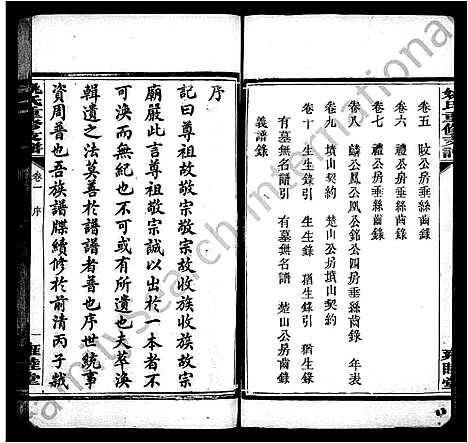 姚氏重修支譜
卷五　政公房垂絲齒錄
卷六　公房垂絲齒錄
卷七　禮公房垂絲齒錄
卷八　麟公鳳公夙公銘公四房垂絲齒錄　年表
卷九　墳山契約　楚山公房墳山契約
卷十　生生錄引　生生錄　猶生錄引　猶生錄
有墓無名譜引　有墓無名譜　楚山公房齒錄
義譜錄
序
記曰尊祖故敬宗敬宗故收族收族故宗
廟嚴此言尊祖敬宗誠以出於一本者不
可渙而無紀也不可或有所遺也夫萃渙
輯遺之法莫善於譜譜者善也序世統事
資周普也吾族譜牒續修於前清丙子越
姚氏重修支譜
卷一　序
一
睦堂